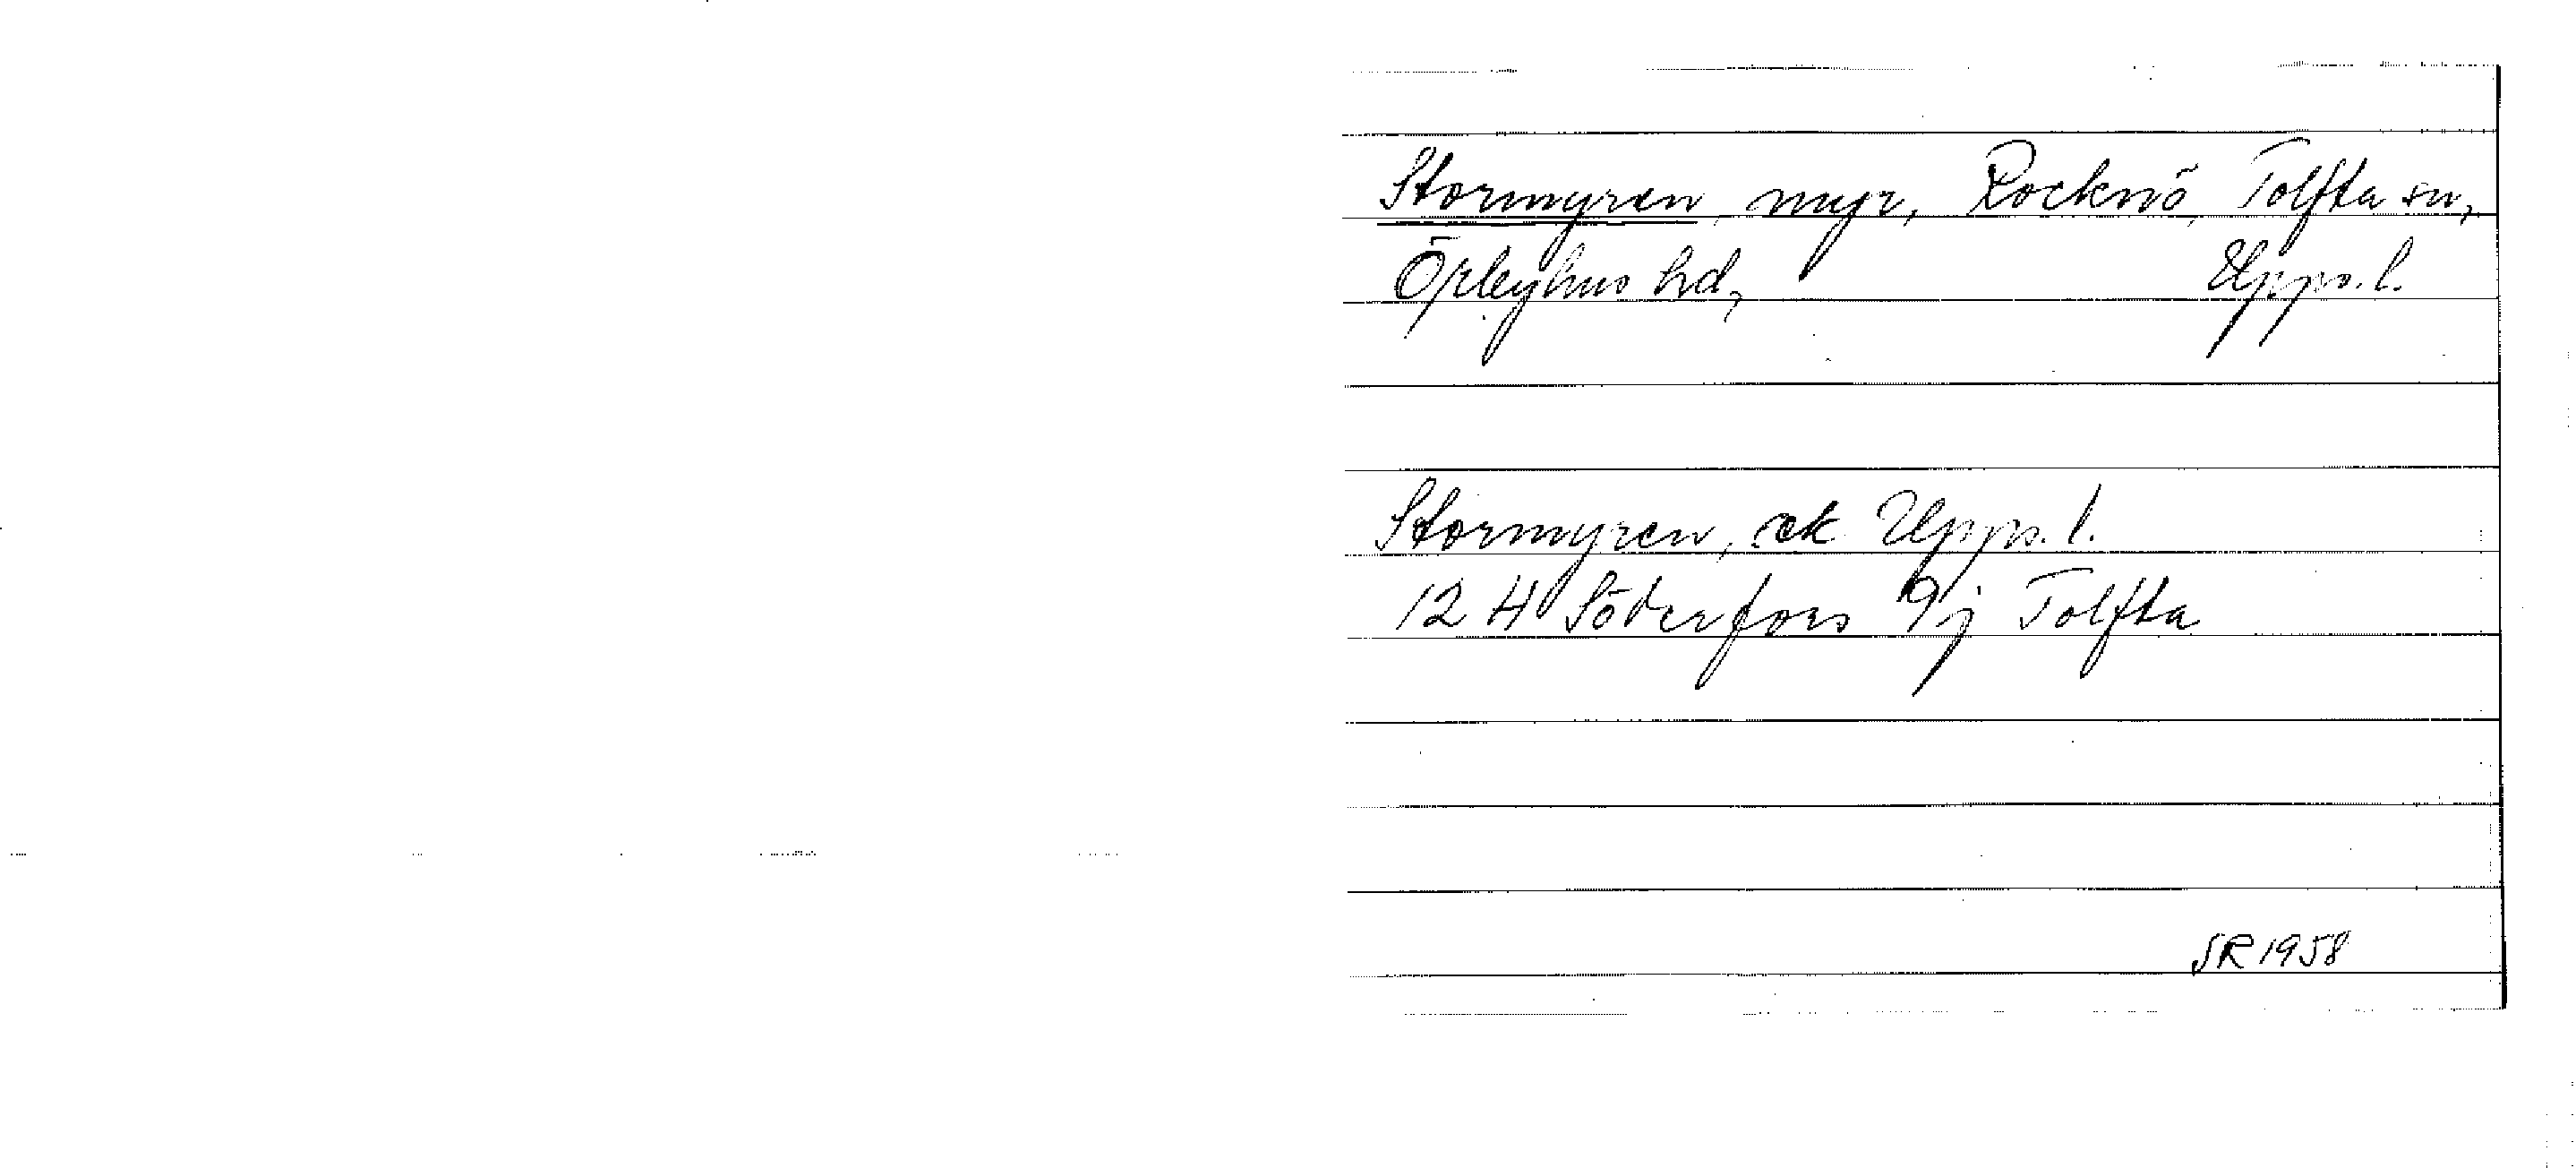 Stormyren, myr, Rocknö, Tolfta sn,
Örbyhus hd, Upps. l.
Stormyren, ek Upps. l.
12 H Söderfors 9j Tolfta
SR 1958